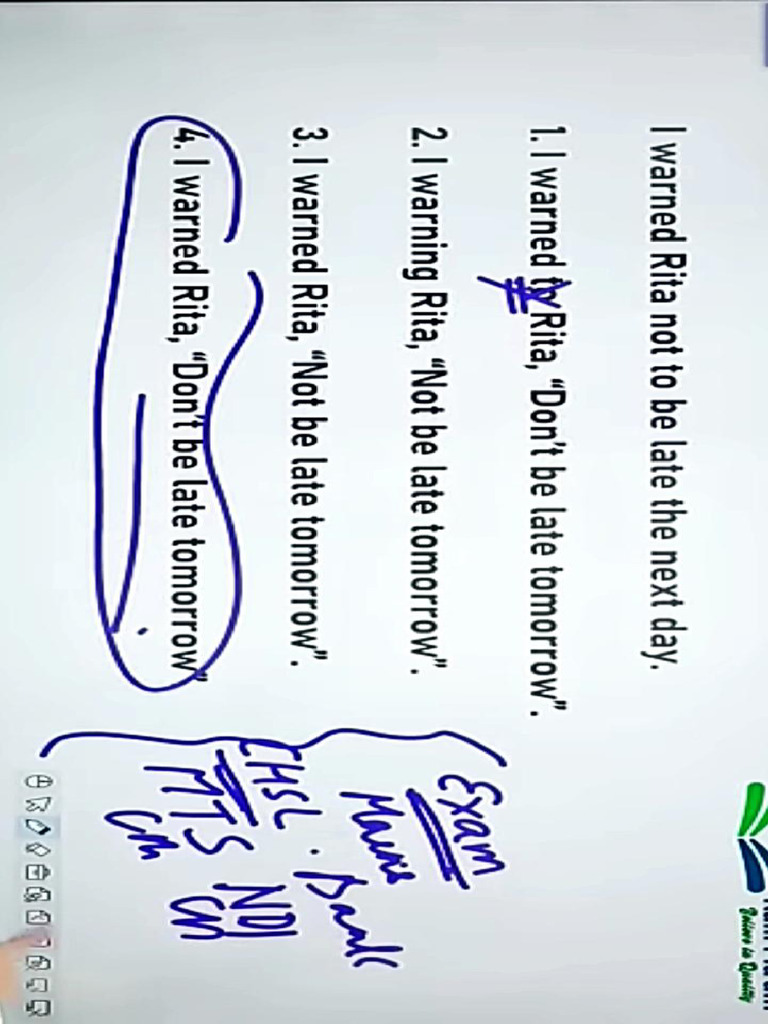 I warned Rita not to be late the next day.
1. I warned to Rita, “Don't be late tomorrow”.
2. I warning Rita, “Not be late tomorrow”.
3. I warned Rita, “Not be late tomorrow”.
4. I warned Rita, “Don't be late tomorrow”
Exam
Mains
Bank
CHSL.
MTS